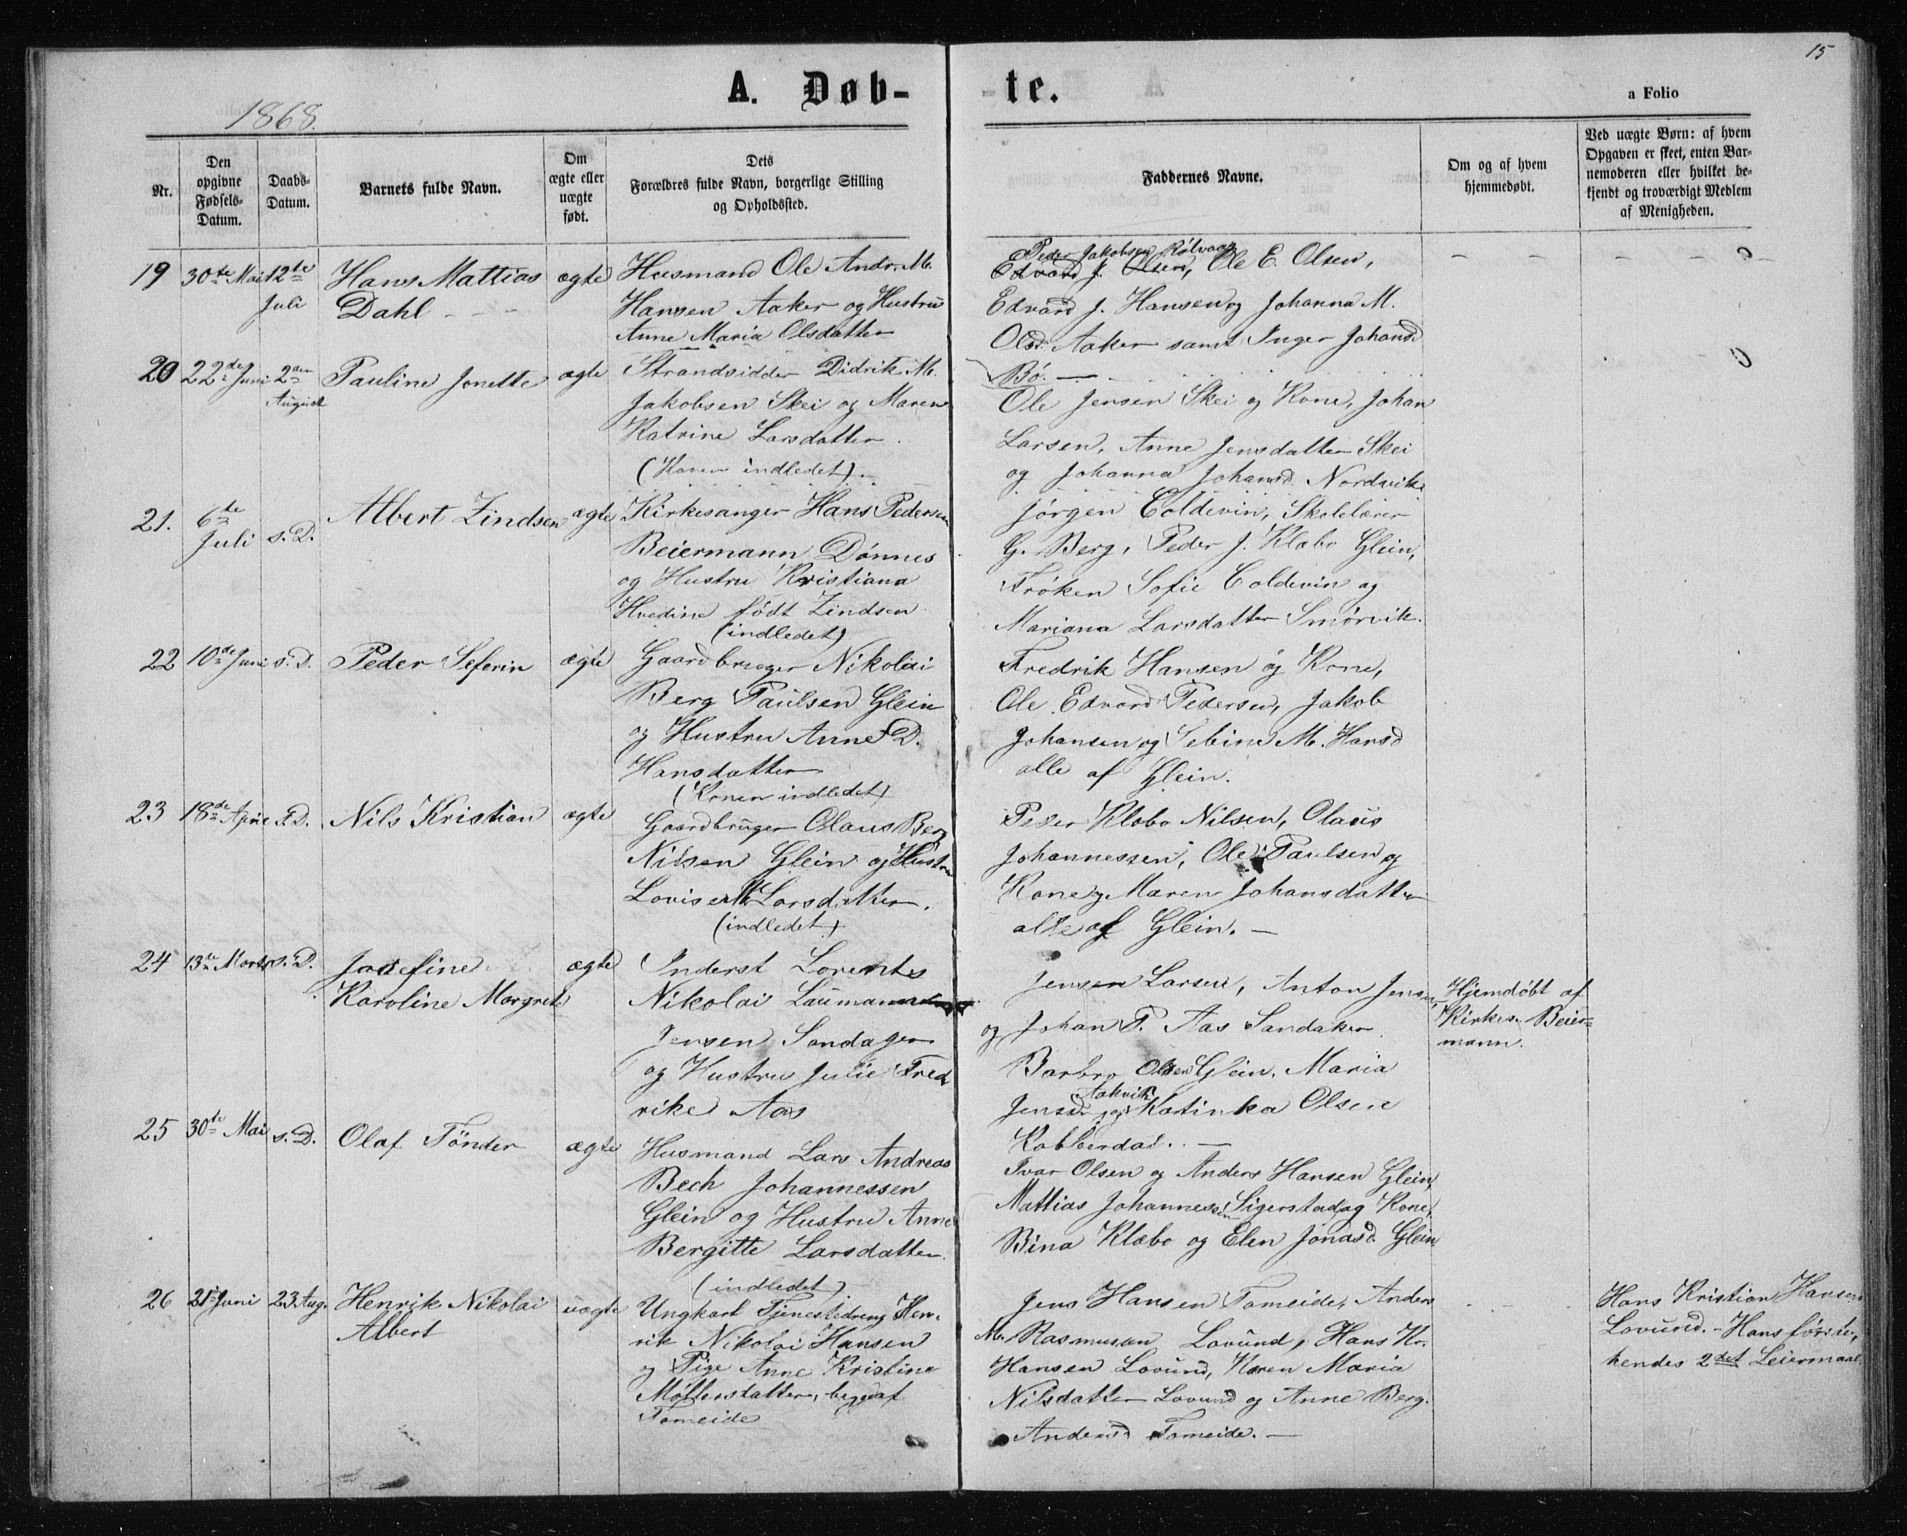 15
A. Døb-
te.
a Folio
1868.
Nr.
Den opgivne Fødsels-Datum.
Daabs-Datum.
Barnets fulde Navn.
Om ægte eller uægte født.
Dets Forældres fulde Navn, borgerlige Stilling og Opholdssted.
Faddernes Navne.
Om og af hvem hjemmedøbt.
Ved uægte Børn: af hvem Opgaven er skeet, enten Barnemoderen eller hvilket bekjendt og troværdigt Medlem af Menigheden.
19
30te Mai
12te
Juli
Hans Mattias
Dahl
ægte
Husmand Ole Andr. M.
Hansen Aaker og Hustru
Anne Maria Olsdatter
Peder Jakobsen Rølvaag
Edvard J. Olsen, Ole E. Olsen,
Edvard J. Hansen og Johanna M.
Olsd. Aaker samt Inger Johansd
Bø.
20
22de Juni
2den
August
Pauline Jonette
ægte
Strandsidder Didrik M.
Jakobsen Skei og Maren
Katrine Larsdatter.
(Konen indledet).
Ole Jensen Skei og Kone, Johan
Larsen, Anne Jensdatter Skei
og Johanna Johansd. Nordvik.
21.
6te
Juli
s. D.
Albert Zindsen
ægte
Kirkesanger Hans Pedersen
Beiermann Dønnes
og Hustru Kristiana
Hvedine født Zindsen
(indledet)
Jørgen Coldevin, Skolelærer
G. Berg, Peder J. Klæbo Glein,
Frøken Sofie Coldevin og
Mariana Larsdatter Smørvik.
22
10de Juni
s. D.
Peder Seferin
ægte
Gaardbruger Nikolai
Berg Paulsen Glein
og Hustru Anne D.
Hansdatter
(Konen indledet)
Fredrik Hansen og Kone,
Ole Edvard Pedersen, Jakob
Johansen og Sebine M. Hansd
alle af Glein.
23
18de April
s. D.
Nils Kristian
ægte
Gaardbruger Olaus Berg
Nilsen Glein og Hustru
Lovise M. Larsdatter.
(indledet)
Peder Klæbo Nilsen, Olaus
Johannessen, Ole Paulsen og
Kone og Maren Johansdatter
alle af Glein.
24
13te Marts
s. D.
Josefine
Karoline Margrete
ægte
Inderst Lorents
Nikolai Laumann
Jensen Sandager
og Hustru Julie Fred
rike Aas
Jensen Larsen, Anton Jensen,
og Johan P. Aas Sandaker
Barbro Olsen Glein, Maria
Jensd Aakvik og Katinka Olsen
Kobberdal.
Hjemdøbt af
Kirkes. Beier-
mann.
25
30te Mai
s. D.
Olaf Tønder
ægte
Husmand Lars Andreas
Bech Johannessen
Glein og Hustru Anne
Bergitte Larsdatter
(indledet)
Ivar Olsen og Anders Hansen Glein,
Mattias Johannessen Sigerstad og Kone,
Bina Klæbo og Elen Jonasd. Glein
26
21de Juni
23 Aug.
Henrik Nikolai
Albert
uægte
Ungkarl Tjenestedreng Hen-
rik Nikolai Hansen
og Pige Anne Kristine
Møllersdatter, begge af
Tomeide
Jens Hansen Tomeide, Anders
M. Rasmusen Lovund, Hans Kr.
Hansen Lovund, Karen Maria
Nilsdatter Lovund og Anne Berg.
Andersd Tomeide.
Hans Kristian Hansen
Lovund. - Hans første,
hendes 2det Leiermaal.